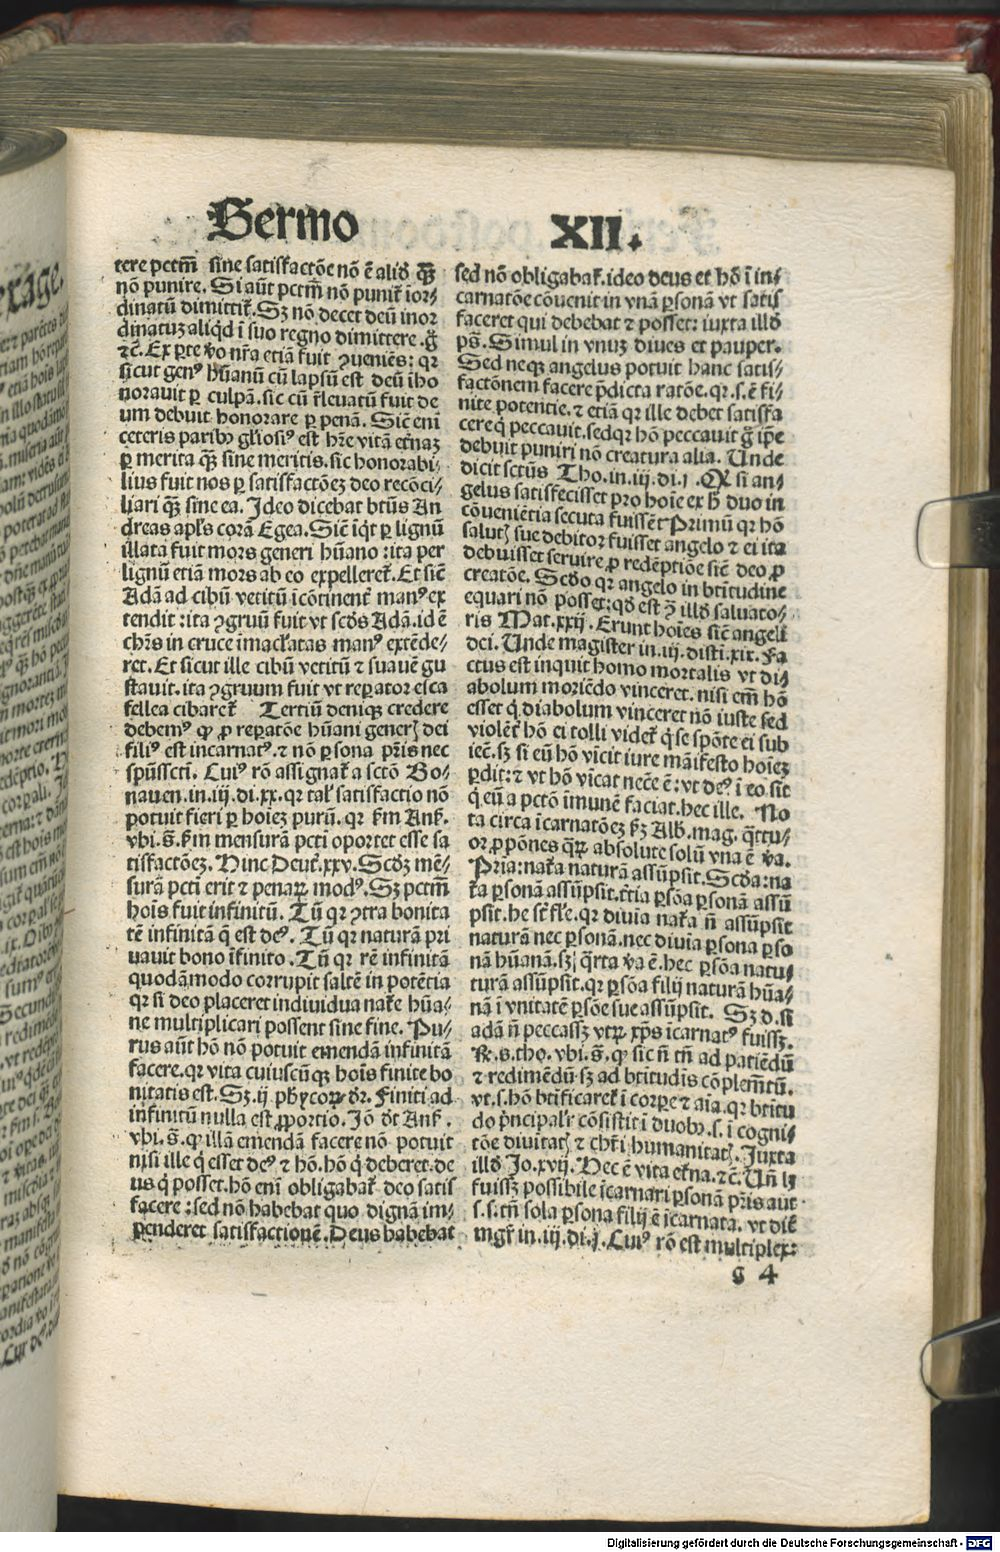 Sermo XII.
tere pctm̄ sine satisfactōe nō ē aliđ qꝫ̄
nō punire. Si aūt pctm̄ nō punit᷑ īor⸗
dinatū dimittit᷑. Sꝫ nō decet deū inor
dinatuꝫ aliqđ ī suo regno dimittere. g̊
⁊c̄. Ex ꝑte ꝟo nr̄a etiā fuit ꝯueniēs: qꝛ
sicut genꝰ hūanū cū lapsū est deū īho
norauit ꝑ culpā. sic cū r̄leuatū fuit de
um debuit honorare ꝑ penā. Sic̄ eni
ceteris paribꝰ gl̄iosiꝰ est hr̄e vitā et̄naꝫ
ꝑ merita qꝫ̄ sine meritis. sic honorabi⸗
lius fuit nos ꝑ satisfactōeꝫ deo recōci⸗
liari qꝫ̄ sine ea. Ideo dicebat btūs An
dreas apl̄s corā Egea. Sic̄ īqͥt ꝑ lignū
illata fuit mors generi hūano : ita per
lignū etiā mors ab eo expelleret᷑. Et sic̄
Adā ad cibū vetitū īcōtinent᷑ manꝰ ex
tendit : ita ꝯgruū fuit vt scđs Adā. id ē
chr̄s in cruce īmacl̄atas manꝰ extēde⸗
ret. Et sicut ille cibū vetitū ⁊ suauē gu
stauit. ita ꝯgruum fuit vt reꝑator esca
fellea cibaret᷑ Tertiū denique credere
debemꝰ ꝙ ꝓ reꝑatōe hūani generꝭ dei
filiꝰ est incarnatꝰ. ⁊ nō ꝑsona pr̄is nec
spūssc̄ti. Cuiꝰ rō assignat᷑ a sctō Bo⸗
nauen. in. iij. di. xx. qꝛ talꝭ satisfactio nō
potuit fieri ꝑ hoieꝫ purū. qꝛ ẜm Ans̄.
vbi. s̄. ẜm mensurā pcti oportet esse sa
tisfactōeꝫ. Hinc Deut᷑. xxv. Scđꝫ mē⸗
surā pcti erit ⁊ penaꝝ modꝰ. Sꝫ pctm̄
hoīs fuit infinitū. Tū qꝛ ꝯtra bonita
tē infinitā q̄ est deꝰ. Tū qꝛ naturā pri
uauit bono īfinito. Tū qꝛ rē infinitā
quodāmodo corrupit saltē in potētia
qꝛ si deo placeret indiuidua nat᷑e hūa⸗
ne multiplicari possent sine fine. Pu⸗
rus aūt hō nō potuit emendā infinitā
facere. qꝛ vita cuiuscūqꝫ hoīs finite bo
nitatis est. Sꝫ. ij phycoꝝ. dr̄. Finiti ad
infinitū nulla est ꝓportio. Iō dt̄ Ans̄.
vbi. s̄. ꝙ illā emendā facere nō potuit
nisi ille q̇ esset deꝰ ⁊ hō. hō q̇ deberet. de
us q̇ posset. hō eni obligabat᷑ deo satis
facere : sed nō habebat quo dignā im⸗
penderet satisfactionē. Deus habebat
sed nō obligabat᷑. ideo deus et hō ī in⸗
carnatōe cōuenit in vnā ꝑsonā vt satis
faceret qui debebat ⁊ posset: iuxta illđ
ps̄. Simul in vnuꝫ diues et pauper.
Sed neqꝫ angelus potuit hanc satis⸗
factōnem facere p̄dicta ratōe. qꝛ. s. ē fi⸗
nite potentie. ⁊ etiā qꝛ ille debet satisfa
cere q̇ peccauit. sed qꝛ hō peccauit g̊ ip̄e
debuit puniri nō creatura alia. Unde
dicit sctūs Tho. in. iij. di. j. Qꝙ si an⸗
gelus satisfecisset pro hoīe ex h̊ duo in
cōueniētia secuta fuissēt Primū qꝛ hō
salutꝭ sue debitor fuisset angelo ⁊ ei ita
debuisset seruire ꝓ redēptiōe sic̄ deo ꝓ
creatōe. Scđo qꝛ angelo in btitudine
equari nō posset: qđ est ꝯ̄ illđ saluato⸗
ris Mat. xxij. Erunt hoīes sic̄ angeli
dei. Unde magister in. iij. disti. xix. Fa
ctus est inquit homo mortalis vt di⸗
abolum moriēdo vinceret. nisi em̄ hō
esset q̇ diabolum vinceret nō iuste sed
violēt᷑ hō ei tolli videt᷑ q̇ se spōte ei sub
iec̄. sꝫ si eū hō vicit iure māifesto hoieꝫ
ꝑdit: ⁊ vt hō vīcat nec̄e ē: vt deꝰ ī eo sit
q̇ eū a pctō īmunē faciat. hec ille. No
ta circa īcarnatōeꝫ ẜꝫ Alb. mag. qͣttu⸗
or ꝓpōnes qͣꝝ absolute solū vna ē ꝟa.
Pria: nat᷑a naturā assūpsit. Scđa: na
t᷑a ꝑsonā assūpsit. t̄tia ꝑsōa ꝑsonā assū
psit. he st̄ fl̄e. qꝛ diuia nat᷑a n̄ assūpsit
naturā nec ꝑsonā. nec diuia ꝑsona ꝑso
nā hūanā. sꝫ qͣrta ꝟa ē. hec ꝑsōa natu⸗
turā assūpsit. qꝛ ꝑsōa filij naturā hūa⸗
nā ī vnitatē ꝑsōe sue assūpsit. Sꝫ ꝺ. si
adā n̄ peccassꝫ vtꝝ xp̄s īcarnatꝰ fuissꝫ.
℞. s. tho. vbi. s̄. ꝙ sic n̄ tn̄ ad patiēdū
⁊ redimēdū sꝫ ad btitudīs cōplem̄tū.
vt. s. hō btificaret᷑ ī corꝑe ⁊ aīa. qꝛ btitu
do p̓ncipalr̄ cōsistit ī duobꝰ. s. ī cogni⸗
tōe diuitatꝭ ⁊ chr̄i humanitatꝭ. Iuxta
illđ Io. xvij. Hec ē vita et̄na. ⁊c̄. Un̄ lꝫ
fuissꝫ possibile īcarnari ꝑsonā pr̄is aut
s. s. tn̄ sola ꝑsona filij ē īcarnata. vt dic̄
mgr̄ in. iij. di. j. Cuiꝰ rō est multiplex:
g 4
Digitalisierung gefördert durch die Deutsche Forschungsgemeinschaft - DFG